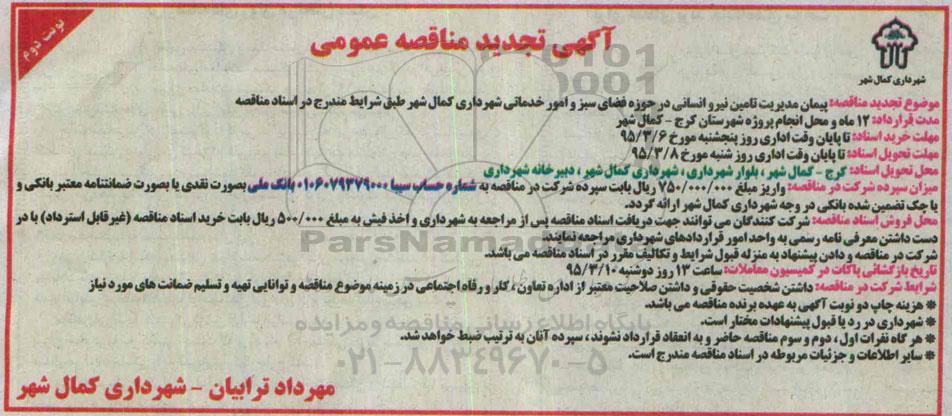 نوبت دوم
آگهی تجدید مناقصه عمومی
شهرداری کمال شهر
موضوع تجدید مناقصه: پیمان مدیریت تامین نیرو انسانی در حوزه فضای سبز و امور خدماتی شهرداری کمال شهر طبق شرایط مندرج در اسناد مناقصه
مدت قرارداد: ۱۲ ماه و محل انجام پروژه شهرستان کرج - کمال شهر
مهلت خرید اسناد: تا پایان وقت اداری روز پنجشنبه مورخ ۹۵/۳/۶
مهلت تحویل اسناد: تا پایان وقت اداری روز شنبه مورخ ۹۵/۳/۸
محل تحویل اسناد: کرج - کمال شهر، بلوار شهرداری، شهرداری کمال شهر، دبیرخانه شهرداری
میزان سپرده شرکت در مناقصه: واریز مبلغ ۷۵۰/۰۰۰/۰۰۰ ریال بابت سپرده شرکت در مناقصه به شماره حساب سیبا ۰۱۰۶۰۷۹۳۷۹۰۰۰ بانک ملی بصورت نقدی یا بصورت ضمانتنامه معتبر بانکی و
یا چک تضمین شده بانکی در وجه شهرداری کمال شهر ارائه گردد.
محل فروش اسناد مناقصه: شرکت کنندگان می توانند جهت دریافت اسناد مناقصه پس از مراجعه به شهرداری و اخذ فیش به مبلغ ۵۰۰/۰۰۰ ریال بابت خرید اسناد مناقصه (غیر قابل استرداد) با در
دست داشتن معرفی نامه رسمی به واحد امور قراردادهای شهرداری مراجعه نمایند.
شرکت در مناقصه و دادن پیشنهاد به منزله قبول شرایط و تکالیف مقرر در اسناد مناقصه می باشد.
تاریخ بازگشائی پاکات در کمیسیون معاملات: ساعت ۱۳ روز دوشنبه ۹۵/۳/۱۰
شرایط شرکت در مناقصه: داشتن شخصیت حقوقی و داشتن صلاحیت معتبر از اداره تعاون، کار و رفاه اجتماعی در زمینه موضوع مناقصه و توانایی تهیه و تسلیم ضمانت های مورد نیاز
* هزینه چاپ دو نوبت آگهی به عهده برنده مناقصه می باشد.
* شهرداری در رد یا قبول پیشنهادات مختار است.
* هر گاه نفرات اول، دوم و سوم مناقصه حاضر و به انعقاد قرارداد نشوند، سپرده آنان به ترتیب ضبط خواهد شد.
* سایر اطلاعات و جزئیات مربوطه در اسناد مناقصه مندرج است.
مهرداد ترابیان - شهرداری کمال شهر
ParsNamad
پایگاه اطلاع رسانی مناقصه و مزایده
۰۲۱-۸۸۳۴۹۶۷۰-۵